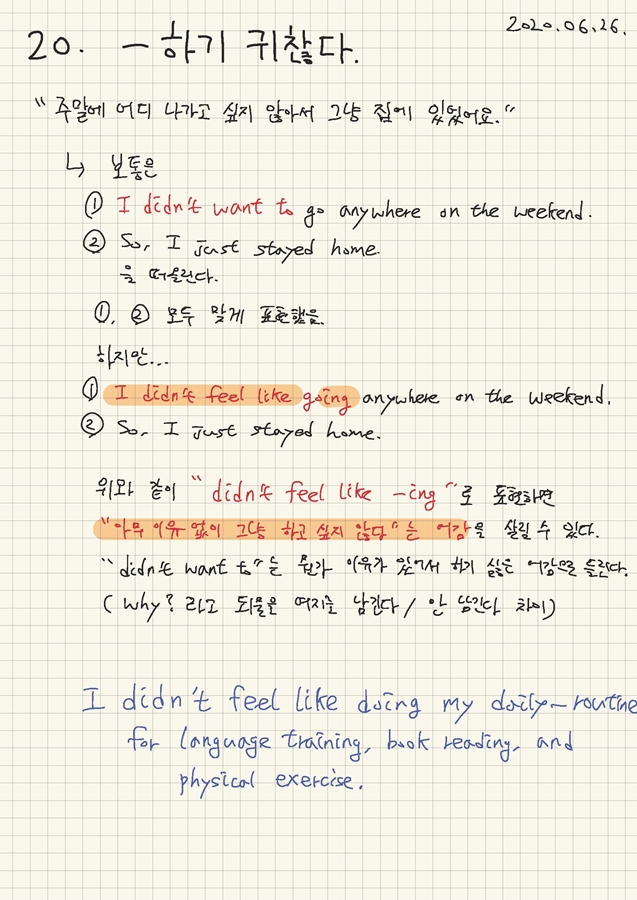 2020.06.26.
20. -하기 귀찮다.
"주말에 어디 나가고 싶지 않아서 그냥 집에 있었어요."
↳ 보통은
① I didn't want to go anywhere on the weekend.
② So, I just stayed home.
을 떠올린다.
①, ② 모두 맞게 표현했음.
하지만...
① I didn't feel like going anywhere on the weekend.
② So, I just stayed home.
위와 같이 "didn't feel like -ing"로 표현하면
"아무 이유 없이 그냥 하고 싶지 않당"는 어감을 살릴 수 있다.
"didn't want to"는 뭔가 이유가 있어서 하기 싫은 어감으로 들린다.
(why? 라고 되물을 여지를 남긴다 / 안 남긴다 차이)
I didn't feel like doing my daily-routine
for language training, book reading, and
physical exercise.